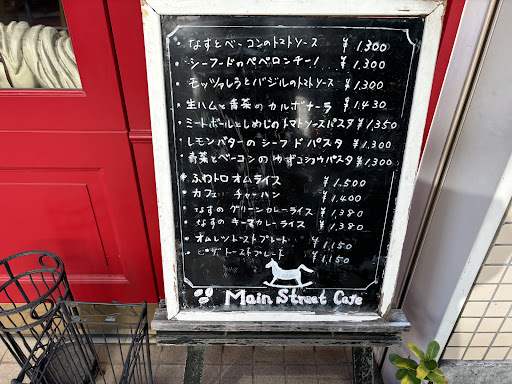 ・なすとベーコンのトマトソース ¥1,300
・シーフードのペペロンチーノ ¥1,300
・モッツァレラとバジルのトマトソース ¥1,300
・生ハムと青菜のカルボナーラ ¥1,430
・ミートボールとしめじのトマトソースパスタ ¥1,350
・レモンバターのシーフードパスタ ¥1,300
・青菜とベーコンのゆずコショウパスタ ¥1,300
・ふわトロオムライス ¥1,500
・カフェ チャーハン ¥1,400
・なすのグリーンカレーライス ¥1,380
・なすのキーマカレーライス ¥1,380
・オムレツトーストプレート ¥1,150
・ピザトーストプレート ¥1,150
Main Street Cafe